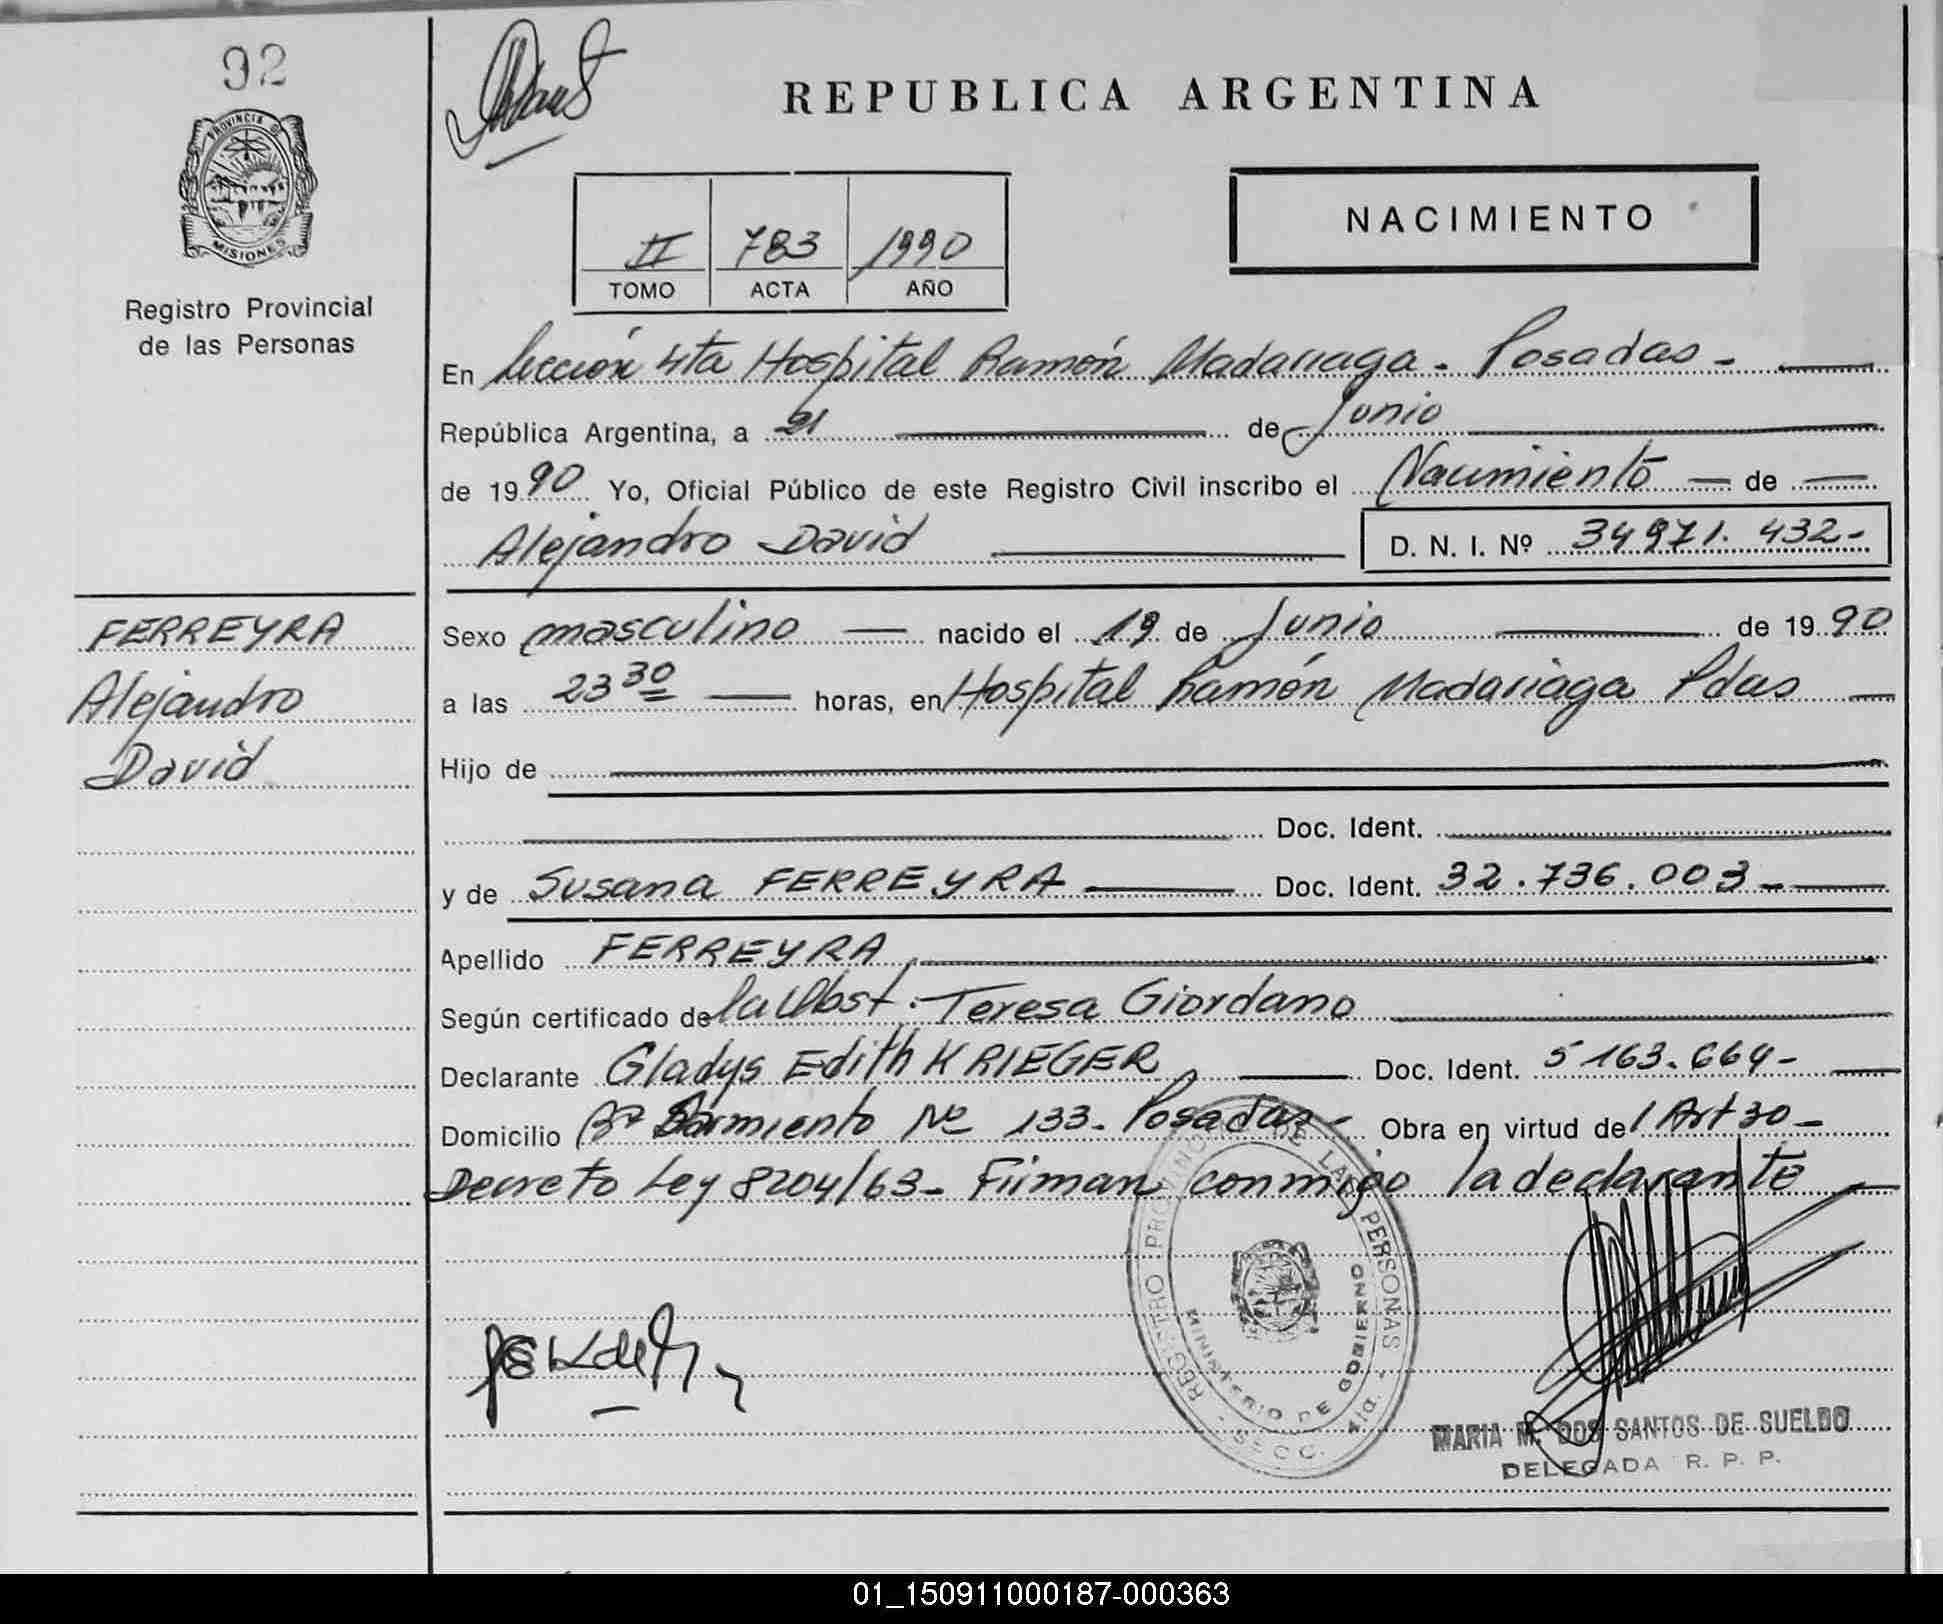 92
PROVINCIA DE
MISIONES
Registro Provincial
de las Personas
REPUBLICA ARGENTINA
II 783 1990
TOMO ACTA AÑO
NACIMIENTO
En Sección 4ta Hospital Ramón Madariaga - Posadas -
República Argentina, a 21 de Junio
de 1990 Yo, Oficial Público de este Registro Civil inscribo el Nacimiento de
Alejandro David D. N. I. Nº 34971.432-
FERREYRA
Alejandro
David
Sexo masculino nacido el 19 de Junio de 1990
a las 23 30 horas, en Hospital Ramón Madariaga Pdas
Hijo de
Doc. Ident.
y de Susana FERREYRA Doc. Ident. 32.736.003-
Apellido FERREYRA
Según certificado de la Obst. Teresa Giordano
Declarante Gladys Edith KRIEGER Doc. Ident. 5163.664-
Domicilio Bº Sarmiento Nº 133- Posadas- Obra en virtud del Art 30-
Decreto Ley 8204/63- Firman conmigo la declarante
REGISTRO PROVINCIAL DE LAS PERSONAS
MINISTERIO DE GOBIERNO
SECC. 4ta.
MARIA M. DOS SANTOS DE SUELDO
DELEGADA R. P. P.
01_150911000187-000363